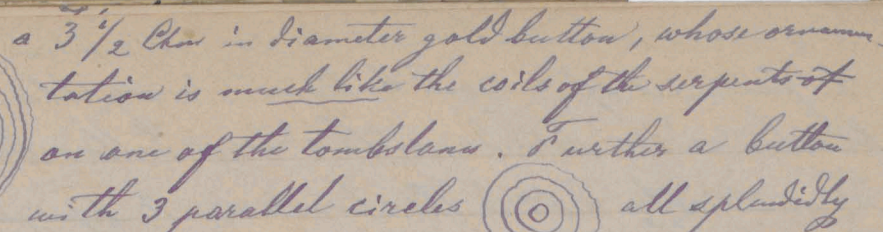 a 3 1/2 Ctm in diameter gold button, whose ornamen-
tation is much like the coils of the serpents of
on one of the tombslabs. Further a button
with 3 parallel circles all splendidly